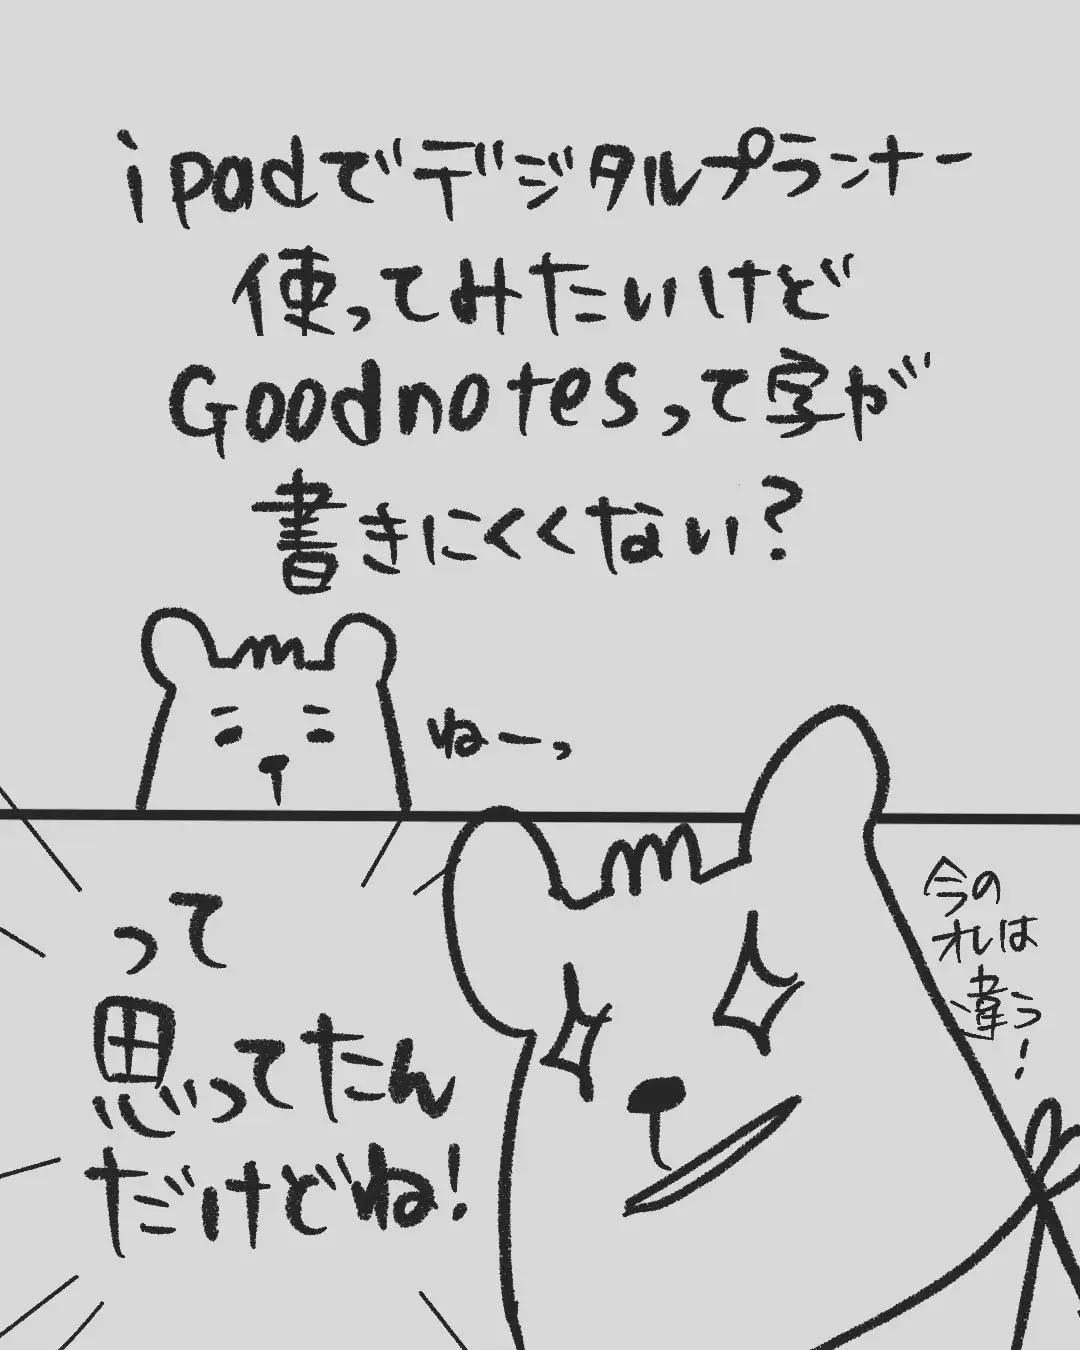 ipadでデジタルプランナー
使ってみたいけど
Goodnotesって字が
書きにくくない？
ねーっ
って
思ってたん
だけどね！
今の
オレは
違う！